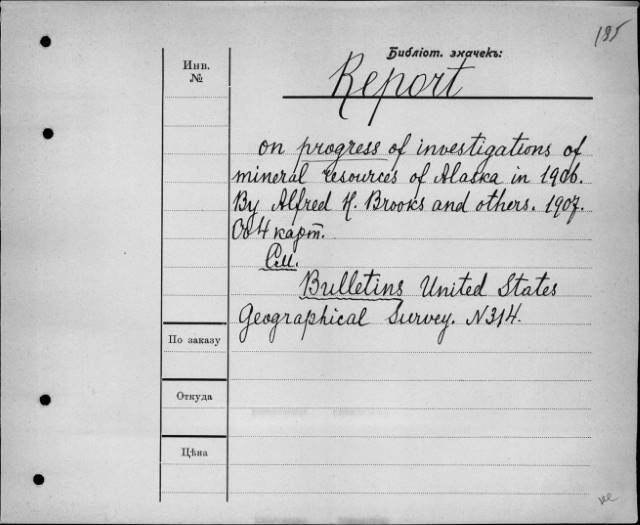 185
Библіот. значекъ:
Инв.
№
Report
on progress of investigations of
mineral resources of Alaska in 1906.
By Alfred H. Brooks and others. 1907.
Съ 4 карт.
См.
Bulletins United States
Geographical Survey. N 314.
По заказу
Откуда
Цѣна